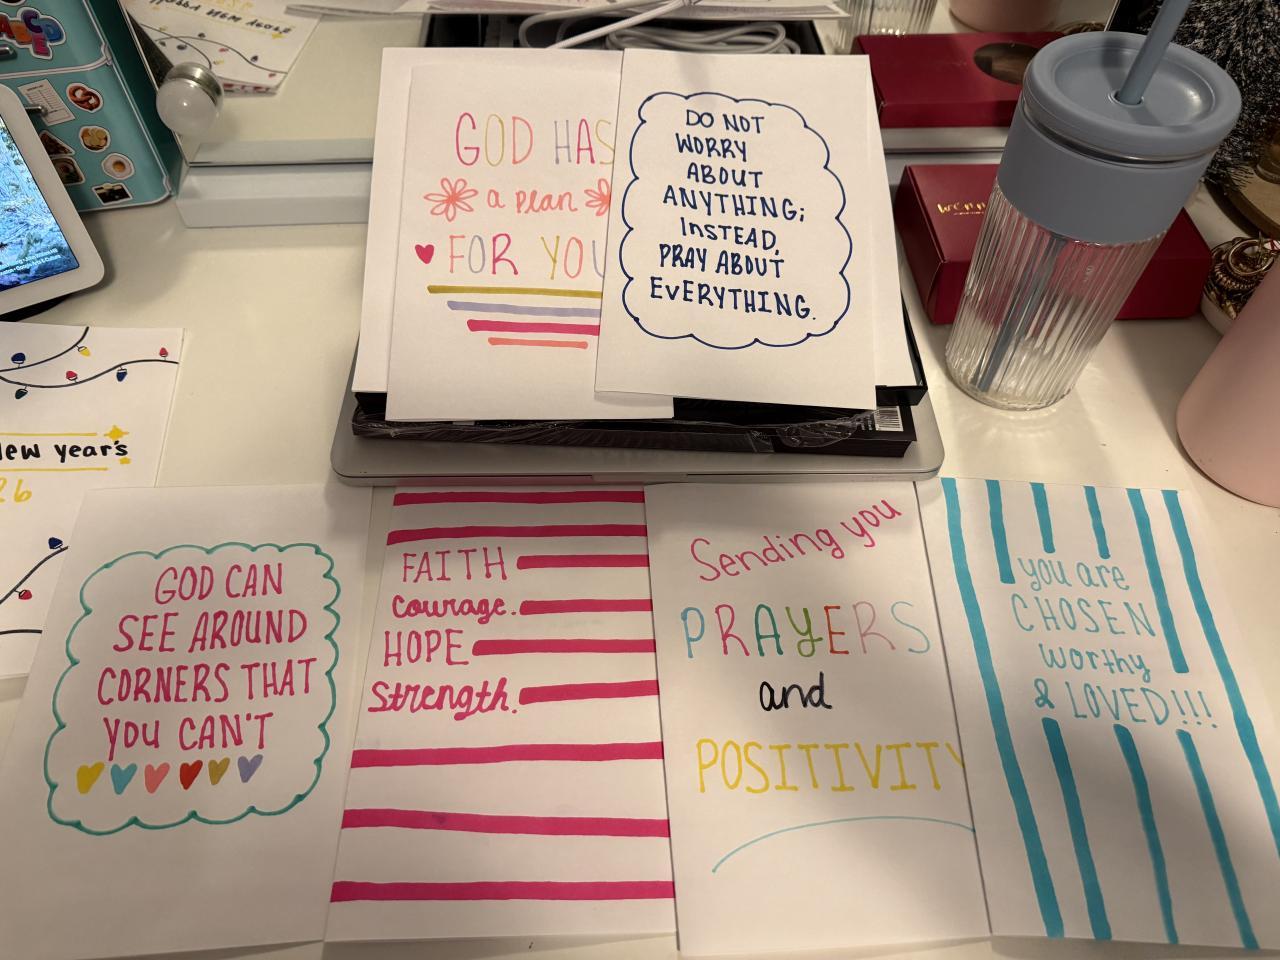 GOD HAS
a plan
FOR YOU
DO NOT
WORRY
ABOUT
ANYTHING;
INSTEAD,
PRAY ABOUT
EVERYTHING.
New year's
26
GOD CAN
SEE AROUND
CORNERS THAT
YOU CAN'T
FAITH
courage.
HOPE
Strength.
Sending you
PRAYERS
and
POSITIVITY
you are
CHOSEN
worthy
& LOVED!!!